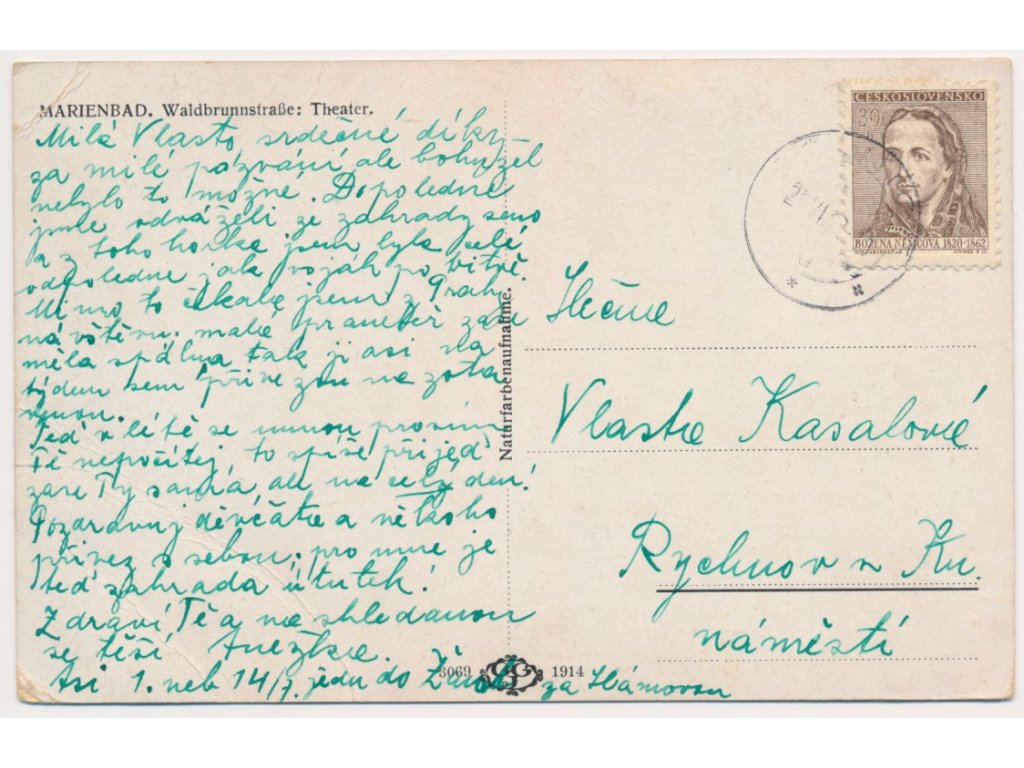 MARIENBAD. Waldbrunnstraße: Theater.
Milá Vlasto, srdečné díky
za milé pozvání ale bohužel
nebylo to možné. Dopoledne
jsme odváželi ze zahrady seno
a z toho horka jsem byla celé
odpoledne jak voják po bitvě.
Mimo to čekala jsem z Prahy
návštěvu. malá praneteř
měla spálu tak ji asi na
týden sem přivezou na zota
venou.
Teď v létě se mnou prosím
Tě nepočítej, to spíše přijeď
zase Ty sama, ale na celý den!
Pozdravuj děvčata a někoho
přivez s sebou; pro mne je
teď zahrada útulek!
Zdraví Tě a na shledanou
se těší Anežka.
Asi 1. neb 14/7. jedu do
za Hámovou
Naturfarbenaufnahme.
3069 1914
ČESKOSLOVENSKO
30
BOŽENA NĚMCOVÁ 1820-1862
Slečna
Vlasta Kasalová
Rychnov n Kn.
náměstí